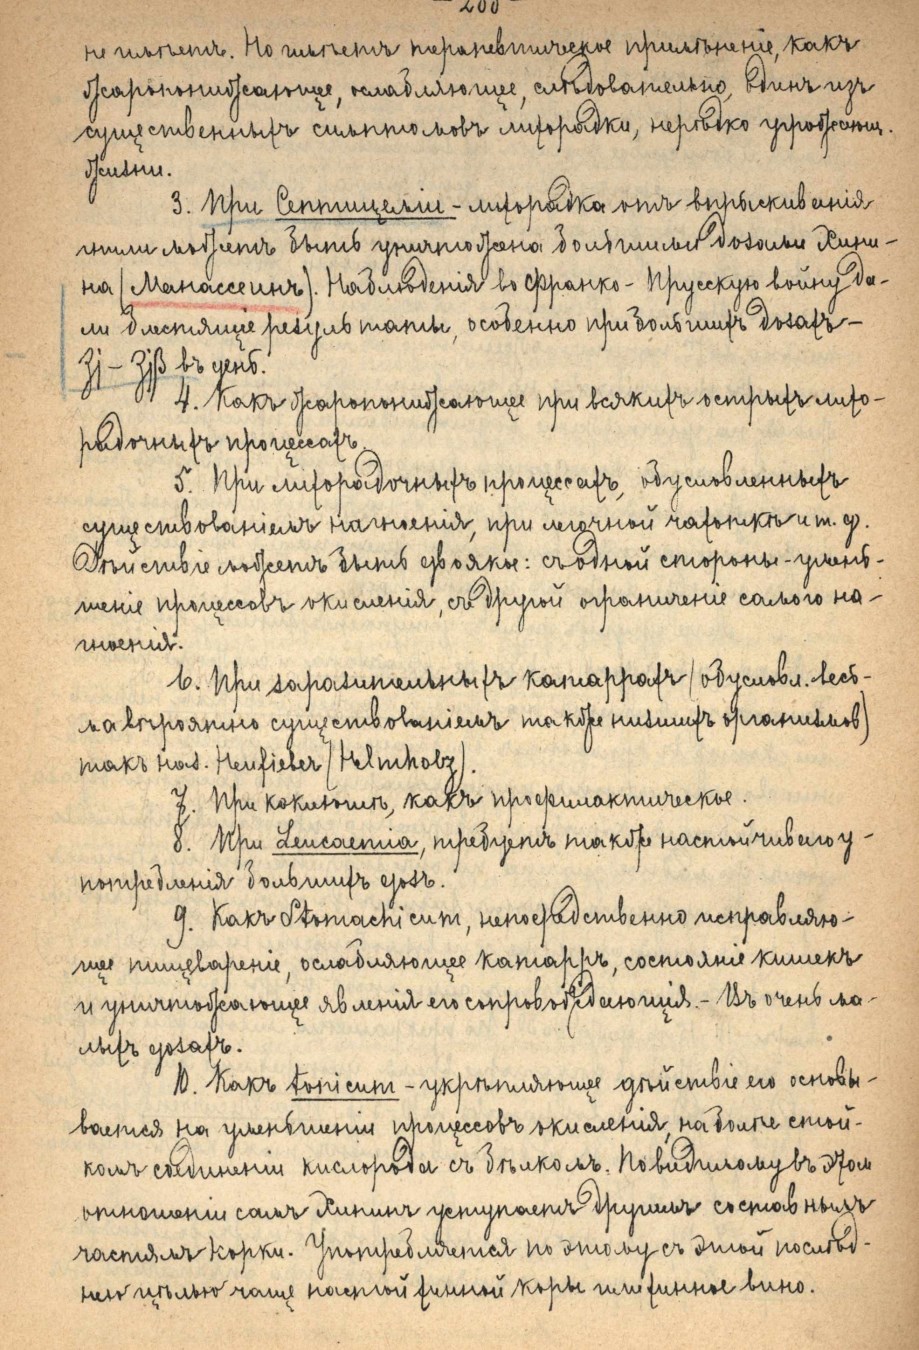 не имѣетъ. Но имѣетъ терапевтическое примѣненіе, какъ
жаропонижающее, ослабляющее, слѣдовательно, одинъ изъ
существенныхъ симптомовъ лихорадки, нерѣдко угрожающ.
жизни.
3. При Септицеміи - лихорадка отъ впрыскиванія
гнили можетъ быть уничтожена большими дозами Хини-
на (Манассеинъ). Наблюденія во Франко-Прусскую войну да-
ли блестящіе результаты, особенно при большихъ дозахъ -
ʒj - ʒjβ въ день.
4. Какъ жаропонижающее при всякихъ острыхъ лихо-
радочныхъ процессахъ.
5. При лихорадочныхъ процессахъ, обусловленныхъ
существованіемъ нагноенія, при легочной чахоткѣ и т. д.
Дѣйствіе можетъ быть двоякое: съ одной стороны - умень-
шеніе процессовъ окисленія, съ другой ограниченіе самого на-
гноенія.
6. При заразительныхъ катаррахъ (обусловл. весь-
ма вѣроятно существованіемъ также низшихъ организмовъ)
такъ наз. Heufieber (Helmholz).
7. При коклюшѣ, какъ профилактическое.
8. При Leucaemia, требуетъ также настойчиваго у-
потребленія большихъ дозъ.
9. Какъ Stomachicum, непосредственно исправляю-
щее пищевареніе, ослабляющее катарръ, состояніе кишекъ
и уничтожающее явленія его сопровождающія. - Въ очень ма-
лыхъ дозахъ.
10. Какъ tonicum - укрѣпляющее дѣйствіе его основы-
вается на уменьшеніи процессовъ окисленія, на болѣе стой-
комъ соединеніи кислорода съ бѣлкомъ. Повидимому въ этом
отношеніи самъ Хининъ уступаетъ другимъ составнымъ
частямъ корки. Употребляется по этому съ этой послѣд-
нею цѣлью чаще настой хинной коры или хинное вино.